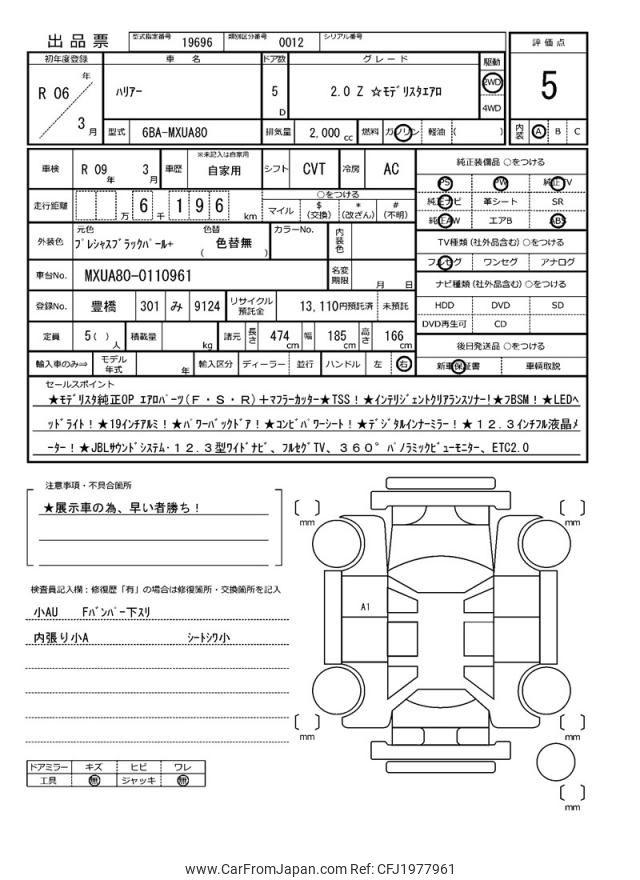 出品票
型式指定番号 19696 類別区分番号 0012 シリアル番号
初年度登録 車名 ドア数 グレード 駆動 評価点
R 06 年 3 月 ハリアー 5 D 2.0 Z ☆モデリスタエアロ 2WD 4WD 5
型式 6BA-MXUA80 排気量 2,000 cc 燃料 ガソリン 軽油 ( ) 内装 A B C
車検 R 09 年 3 月 車歴 ※未記入は自家用 自家用 シフト CVT 冷房 AC
純正装備品 ○をつける
PS PW 純正TV
純正ナビ 革シート SR
純正AW エアB ABS
走行距離 万 6 千 1 9 6 km ○をつける マイル $ (交換) * (改ざん) # (不明)
TV種類 (社外品含む) ○をつける
フルセグ ワンセグ アナログ
外装色 元色 プレシャスブラックパール+ 色替 ( 色替無 ) カラーNo. 内装色
ナビ種類 (社外品含む) ○をつける
HDD DVD SD
DVD再生可 CD
車台No. MXUA80-0110961 名変期限 月 日
登録No. 豊橋 301 み 9124 リサイクル預託金 13,110円預託済 未預託
定員 5 ( ) 人 積載量 kg 諸元 長さ 474 cm 幅 185 cm 高さ 166 cm
後日発送品 ○をつける
新車保証書 車輌取説
輸入車のみ⇨ モデル年式 年 輸入区分 ディーラー 並行 ハンドル 左 右
セールスポイント
★モデリスタ純正OP エアロパーツ(F・S・R)+マフラーカッター★TSS!★インテリジェントクリアランスソナー!★フBSM!★LEDヘ
ッドライト!★19インチアルミ!★パワーバックドア!★コンビパワーシート!★デジタルインナーミラー!★12.3インチフル液晶メ
ーター!★JBLサウンドシステム・12.3型ワイドナビ、フルセグTV、360°パノラミックビューモニター、ETC2.0
注意事項・不具合箇所
★展示車の為、早い者勝ち!
検査員記入欄:修復歴「有」の場合は修復箇所・交換箇所を記入
小AU Fバンパー下スリ
内張り小A シートシワ小
ドアミラー キズ ヒビ ワレ
工具 無 ジャッキ 無
A1
mm
mm
mm
mm
mm
www.CarFromJapan.com Ref: CFJ1977961